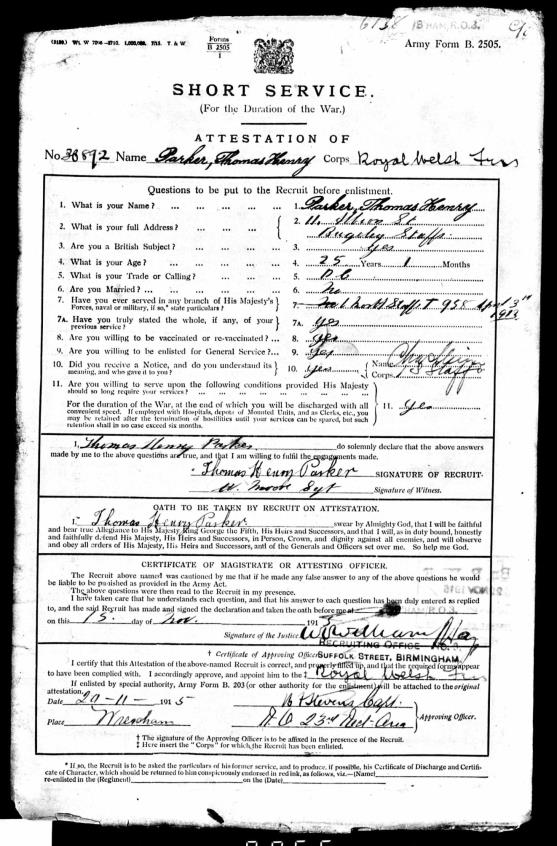 B'HAM, R.O.3.
Forms
B 2505
1
Army Form B. 2505.
SHORT SERVICE.
(For the Duration of the War.)
ATTESTATION OF
No. 38892 Name Parker, Thomas Henry Corps Royal Welsh Fus
Questions to be put to the Recruit before enlistment.
1. What is your Name? ... 1. Parker, Thomas Henry
2. What is your full Address? ... 2. 11. Albion St
Rugeley Staffs.
3. Are you a British Subject? ... 3. Yes
4. What is your Age? ... 4. 25 Years 1 Months
5. What is your Trade or Calling? ... 5. P.C.
6. Are you Married? ... 6. No
7. Have you ever served in any branch of His Majesty's
Forces, naval or military, if so,* state particulars? 7. North Staff. T 958
7A. Have you truly stated the whole, if any, of your
previous service? 7A. Yes
8. Are you willing to be vaccinated or re-vaccinated? ... 8. Yes
9. Are you willing to be enlisted for General Service? ... 9. Yes
10. Did you receive a Notice, and do you understand its
meaning, and who gave it to you? 10. Yes Name
Corps
11. Are you willing to serve upon the following conditions provided His Majesty
should so long require your services?
For the duration of the War, at the end of which you will be discharged with all
convenient speed. If employed with Hospitals, depots of Mounted Units, and as Clerks, etc., you
may be retained after the termination of hostilities until your services can be spared, but such
retention shall in no case exceed six months. 11. Yes
I, Thomas Henry Parker do solemnly declare that the above answers
made by me to the above questions are true, and that I am willing to fulfil the engagements made.
Thomas Henry Parker SIGNATURE OF RECRUIT.
W. Moore Sgt Signature of Witness.
OATH TO BE TAKEN BY RECRUIT ON ATTESTATION.
I, Thomas Henry Parker swear by Almighty God, that I will be faithful
and bear true Allegiance to His Majesty King George the Fifth, His Heirs and Successors, and that I will, as in duty bound, honestly
and faithfully defend His Majesty, His Heirs and Successors, in Person, Crown, and dignity against all enemies, and will observe
and obey all orders of His Majesty, His Heirs and Successors, and of the Generals and Officers set over me. So help me God.
CERTIFICATE OF MAGISTRATE OR ATTESTING OFFICER.
The Recruit above named was cautioned by me that if he made any false answer to any of the above questions he would
be liable to be punished as provided in the Army Act.
The above questions were then read to the Recruit in my presence.
I have taken care that he understands each question, and that his answer to each question has been duly entered as replied
to, and the said Recruit has made and signed the declaration and taken the oath before me at
on this 15. day of Nov. 1915
Signature of the Justice
RECRUITING OFFICE
† Certificate of Approving Officer. SUFFOLK STREET, BIRMINGHAM.
I certify that this Attestation of the above-named Recruit is correct, and properly filled up, and that the required forms appear
to have been complied with. I accordingly approve, and appoint him to the ‡ Royal Welsh Fus
If enlisted by special authority, Army Form B. 203 (or other authority for the enlistment) will be attached to the original
attestation.
Date 29-11- 1915 Stevens Capt.
Place Wrexham R.O 23rd Rect. Area Approving Officer.
† The signature of the Approving Officer is to be affixed in the presence of the Recruit.
‡ Here insert the "Corps" for which the Recruit has been enlisted.
* If so, the Recruit is to be asked the particulars of his former service, and to produce, if possible, his Certificate of Discharge and Certifi-
cate of Character, which should be returned to him conspicuously endorsed in red ink, as follows, viz.—(Name)
re-enlisted in the (Regiment) on the (Date)